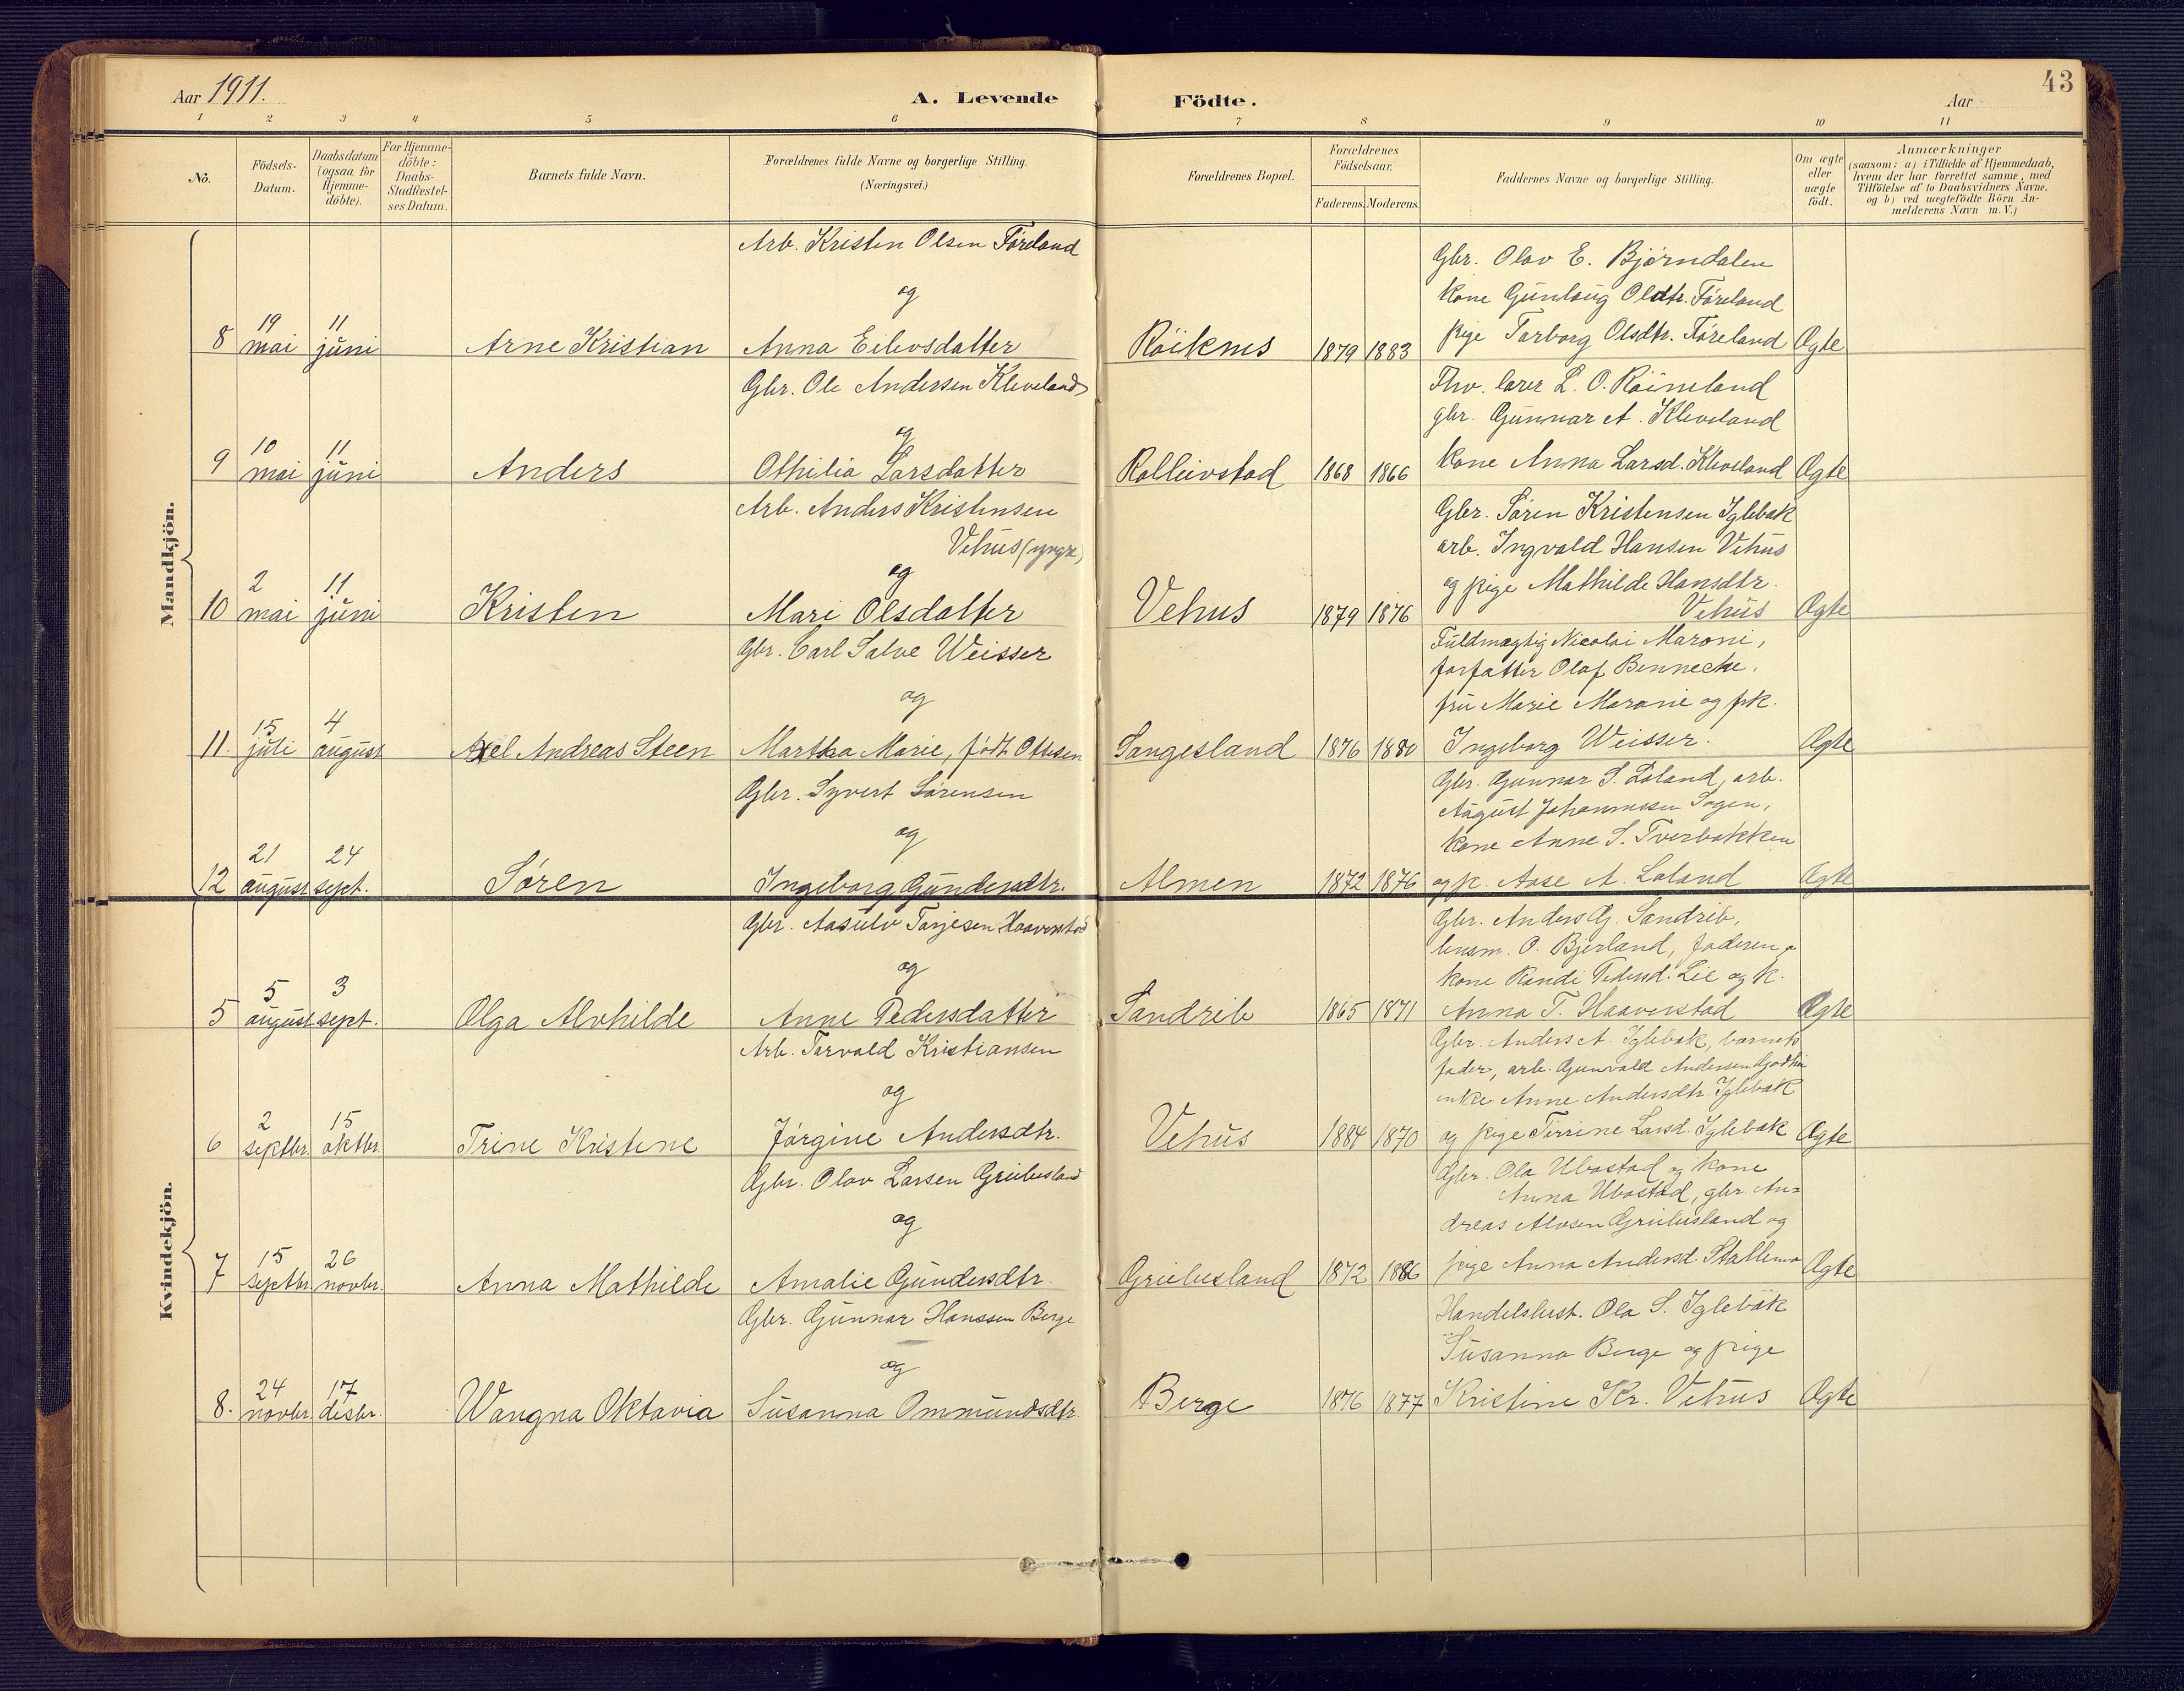 Aar 1911.
A. Levende Födte.
Aar
43
1 2 3 4 5 6 7 8 9 10 11
No.
Födsels-
Datum.
Daabsdatum
(ogsaa for
Hjemme-
döbte).
For Hjemme-
döbte:
Daabs-
Stadfæstel-
ses Datum.
Barnets fulde Navn.
Forældrenes fulde Navne og borgerlige Stilling.
(Næringsvei.)
Forældrenes Bopæl.
Forældrenes
Födselsaar.
Faderens. Moderens.
Faddernes Navne og borgerlige Stilling.
Om ægte
eller
uægte
födt.
Anmærkninger
(saasom: a) i Tilfælde af Hjemmedaab,
hvem der har forrettet samme, med
Tilföielse af to Daabsvidners Navne,
og b) ved uægtefödte Börn An-
melderens Navn m. V.)
Mandkjön.
8
19 mai
11 juni
Arne Kristian
Arb. Kristen Olsen Føreland
og
Anna Eilevsdatter
Röiknes
1879 1883
Gbr. Olav E. Bjørndalen
kone Gunlaug Oldtr. Føreland
pige Torborg Olsdtr. Føreland
Ægte
9
10 mai
11 juni
Anders
Gbr. Ole Andersen Kleveland
og
Othilia Larsdatter
Rolleivstad
1868 1866
Fhv. lærer L. O. Röineland
gbr. Gunnar A. Kleveland
kone Anna Larsd. Kleveland
Ægte
10
2 mai
11 juni
Kristen
Arb. Anders Kristensen
Vehus (yngre)
og
Mari Olsdatter
Vehus
1879 1876
Gbr. Sören Kristensen Iglebæk
arb. Ingvald Hansen Vehus
og pige Mathilde Hansdtr.
Vehus
Ægte
11.
15 juli
4 august
Axel Andreas Steen
Gbr. Carl Salve Weisser
og
Martha Marie, født Ottesen
Sangesland
1876 1880
Fuldmægtig Nicolai Maroni,
forfatter Olaf Benneche,
fru Marie Maronie og frk.
Ingeborg Weisser.
Ægte
12
21 august
24 sept.
Sören
Gbr. Syvert Sørensen
og
Ingeborg Gundersdtr.
Almen
1872 1876
Gbr. Gunnar S. Loland, arb.
August Johannesen Sogen,
kone Anne S. Tverbakken
og p. Aase A. Loland
Ægte
Kvindekjön.
5
5 august
3 sept.
Olga Alvhilde
Gbr. Aasulv Tarjesen Haaverstad
og
Anne Pedersdatter
Sandrib
1865 1871
Gbr. Anders G. Sandrib,
lensm. O. Bjerland, faderen,
kone Randi Pedersd. Lie og k.
Anna T. Haaverstad
Ægte
6
2 septbr.
15 oktbr.
Trine Kristene
Arb. Torvald Kristiansen
og
Jørgine Andersdtr.
Vehus
1884 1870
Gbr. Anders A. Iglebæk, barnets
fader, arb. Gunvald Andersen
enke Anne Andersdtr. Iglebæk
og pige Tirrine Larsd. Iglebæk
Ægte
7
15 septbr.
26 novbr.
Anna Mathilde
Gbr. Olav Larsen Griebesland
og
Amalie Gundersdtr.
Griebesland
1872 1886
Gbr. Ola Ubostad og kone
Anna Ubostad, gbr. An-
dreas Alvsen Griebesland og
pige Anna Andersd. Stallemo
Ægte
8.
24 novbr.
17 desbr.
Wangna Oktavia
Gbr. Gunnar Hanssen Berge
og
Susanna Ommundsdtr.
Berge
1876 1877
Handelsbest. Ola S. Iglebæk
Susanna Berge og pige
Kristine Kr. Vehus
Ægte